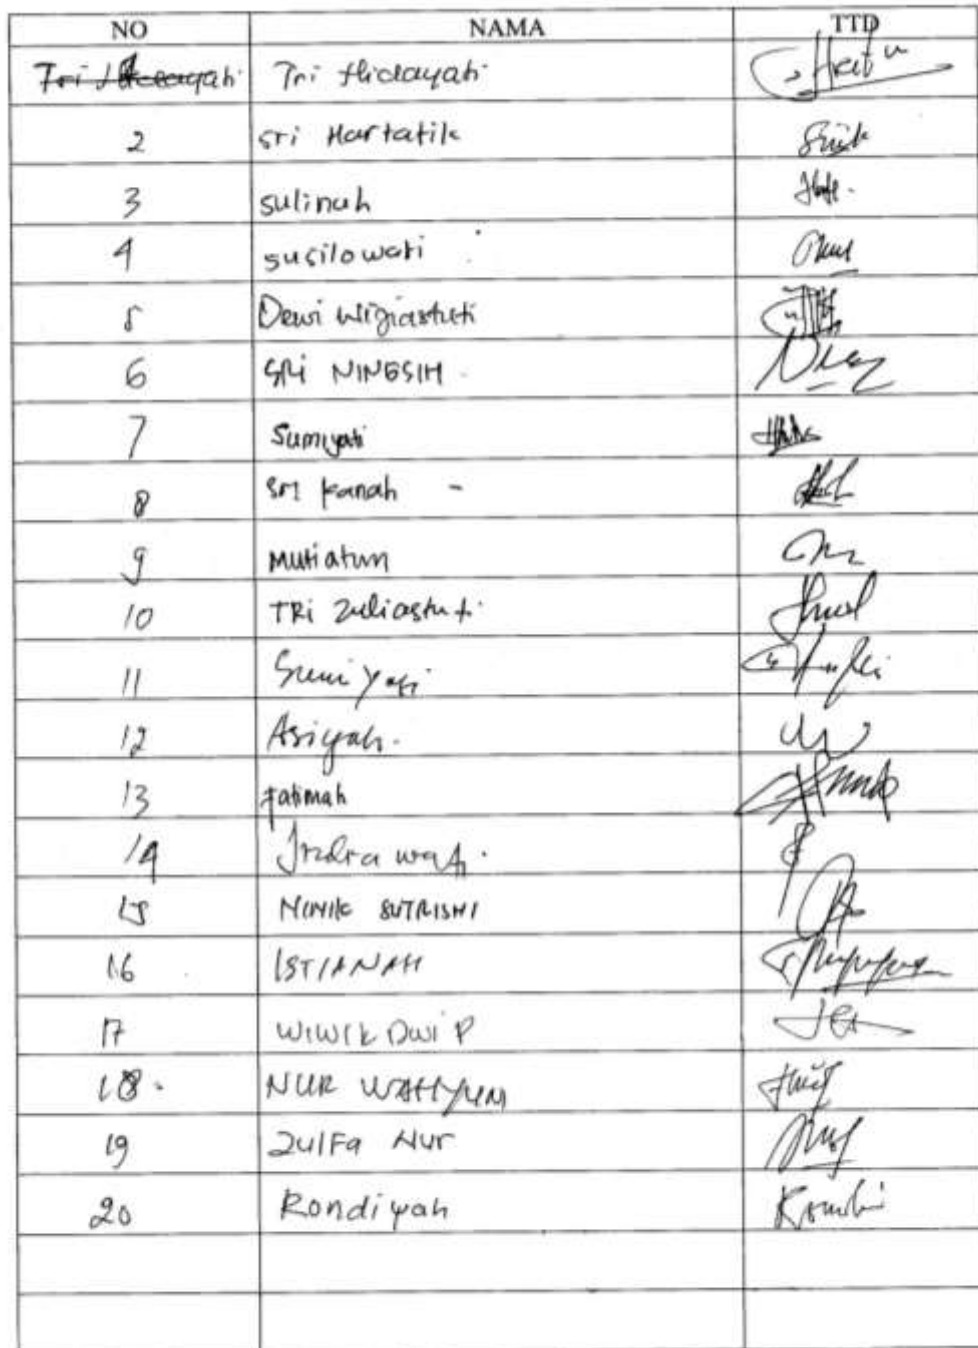 NO NAMA TTD
Tri Hidayati Tri Hidayati
2 Sri Hartatik
3 sulinah
4 susilowati
5 Dewi Wigiastuti
6 SRi NINGSIH
7 Sumiyati
8 Sri Kanah -
9 Mutiatun
10 TRi Zuliastuti
11 Sumiyati
12 Asiyah.
13 Fatimah
14 Indra wati.
15 NINIK SUTRISNI
16 ISTIANAH
17 WIWIK DWi P
18. NUR WAHYUNI
19 ZulFa Nur
20 Rondiyah